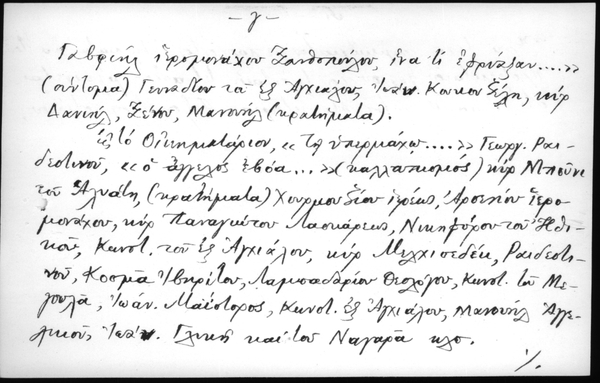 -γ-
Γαβριὴλ ἱερομονάχου Ξανθοπούλου, ἵνα τί ἐφρύαξαν....»
(σύντομα) Γενναδίου τὰ ἐξ Ἀγχιάλου, Ἰωάν. Κουκουζέλη, κὺρ
Δανιήλ, Ξένου, Μανουήλ (κρατήματα).
εἰς τὸ Οἰκηματάριον, «τῇ ὑπερμάχῳ....» Γεωργ. Ραι-
δεστινοῦ, «ὁ ἄγγελος ἐβόα...» (καλλωπισμός) κὺρ Μπούνη
τοῦ Ἀλυάτη, (κρατήματα) Χουρμουζίου ἱερέως, Ἀρσενίου Ἱερο-
μονάχου, κὺρ Παναγιώτου Λασκάρεως, Νικηφόρου τοῦ Ἠθι-
κοῦ, Κωνστ. τοῦ ἐξ Ἀγχιάλου, κὺρ Μελχισεδέκ, Ραιδεστι-
νοῦ, Κοσμᾶ Ἰβηρίτου, Λαμπαδαρίου Θεολόγου, Κωνστ. τοῦ Μα-
γουλᾶ, Ἰωάν. Μαΐστορος, Κωνστ. ἐξ Ἀγχιάλου, Μανουὴλ Ἀγγε-
λικοῦ, Ἰωάν. Γλυκῆ καὶ τοῦ Ναγαρᾶ κλπ.
./.